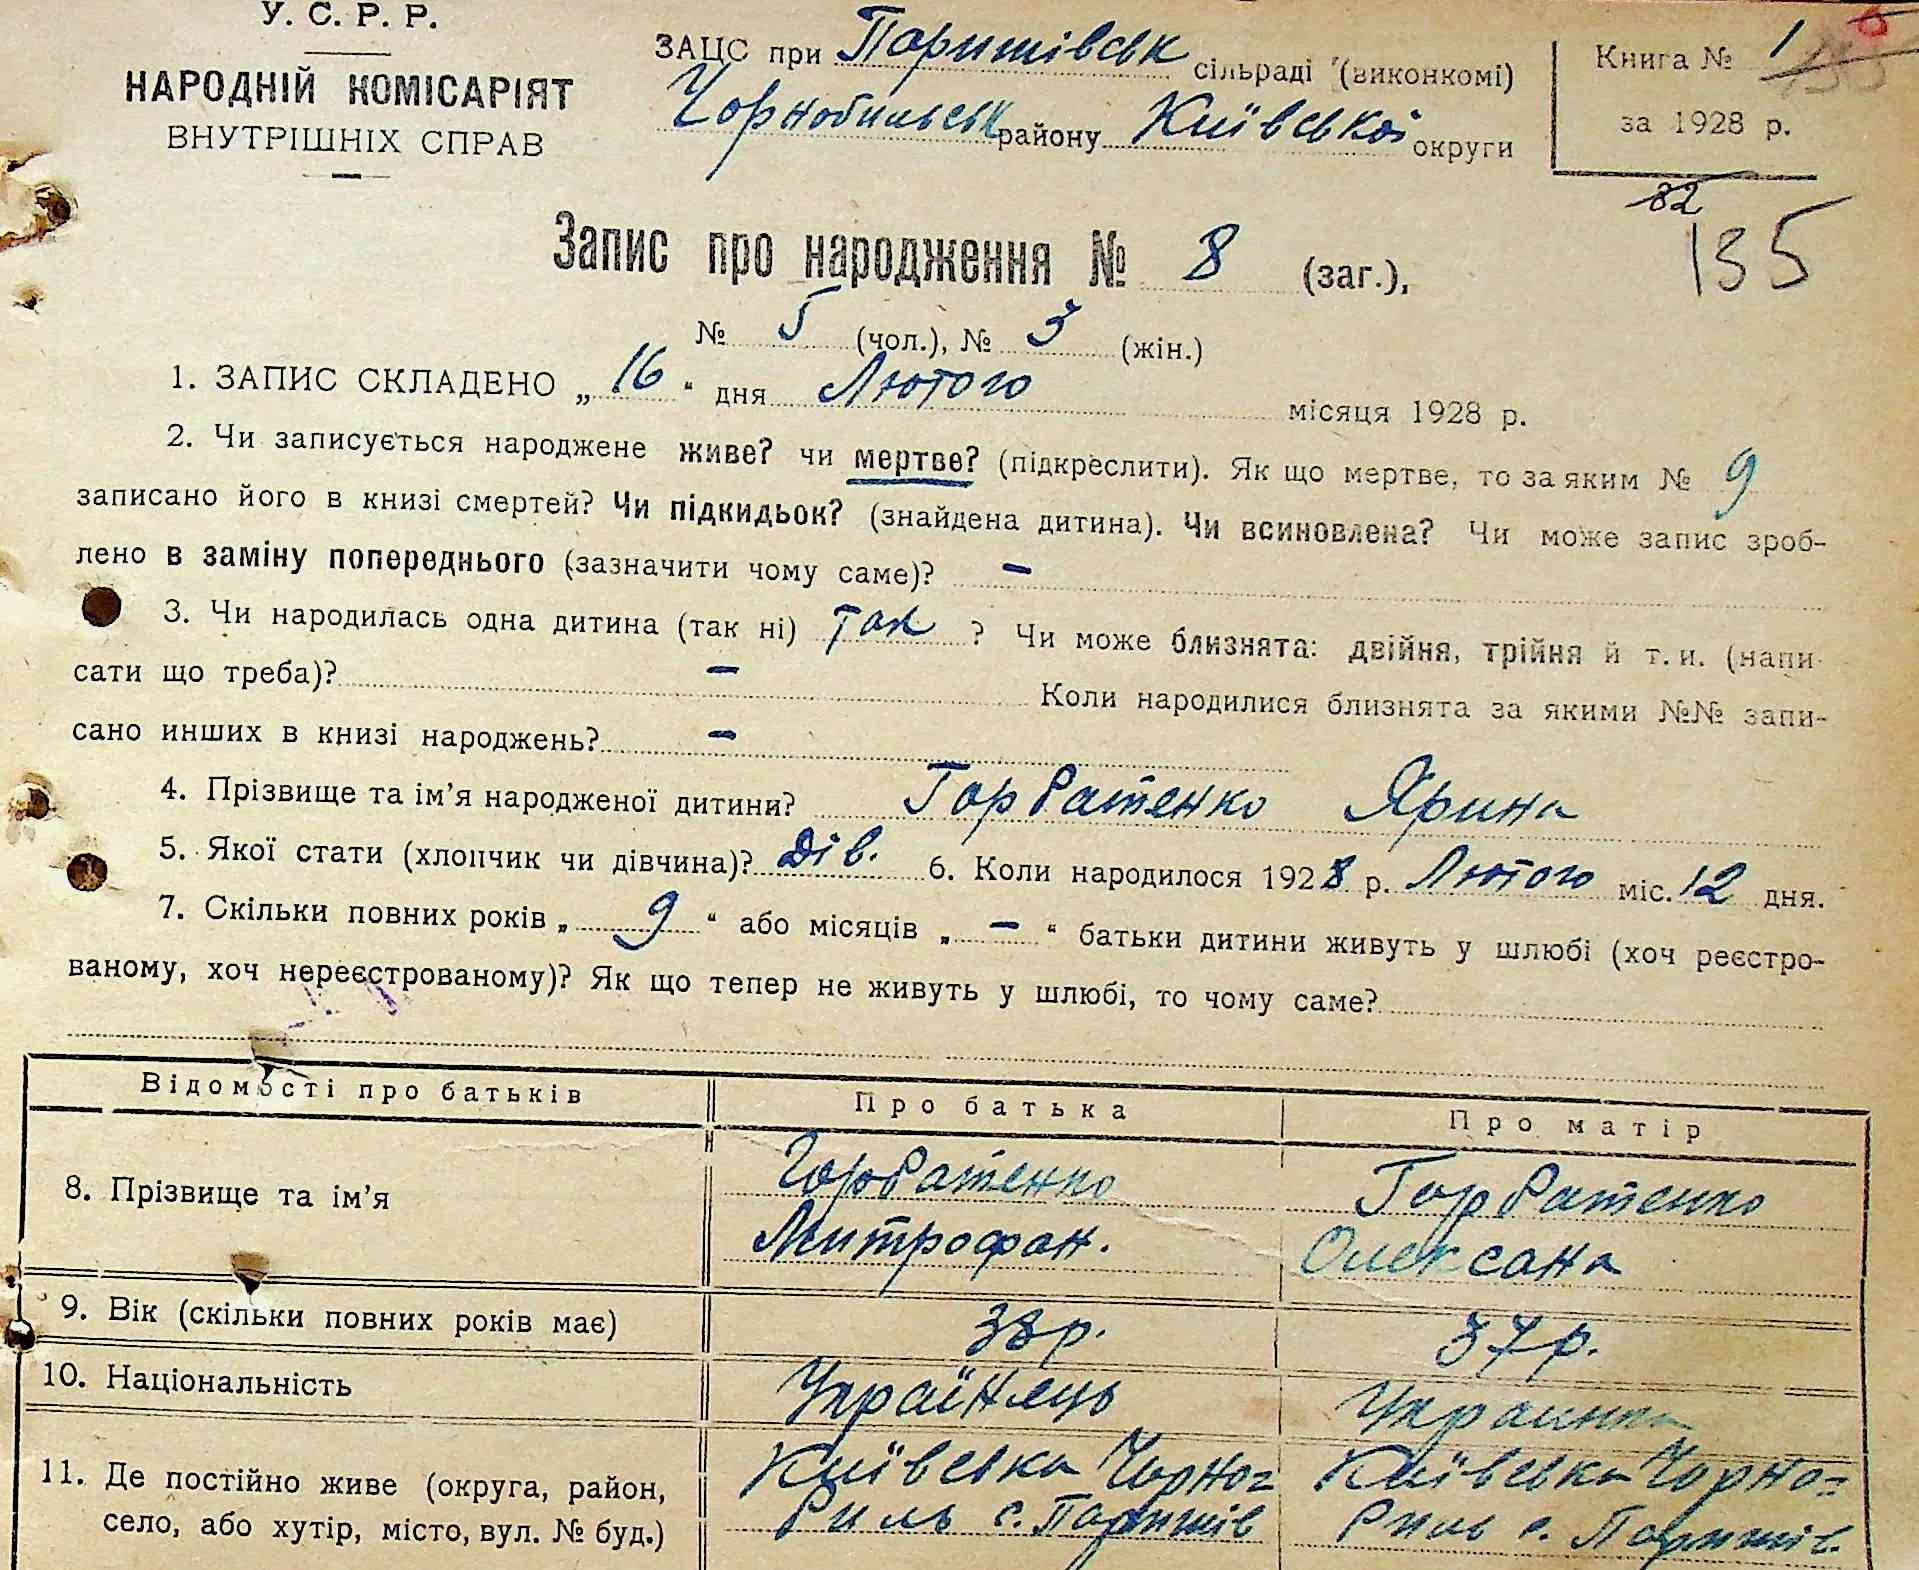 У. С. Р. Р.
НАРОДНІЙ КОМІСАРІЯТ
ВНУТРІШНІХ СПРАВ
ЗАЦС при Паришівськ сільраді (виконкомі)
Чорнобильськ району Київської округи
Книга № 1
за 1928 р.
82
135
Запис про народження № 8 (заг.),
№ 5 (чол.), № 3 (жін.)
1. ЗАПИС СКЛАДЕНО „ 16 “ дня Лютого місяця 1928 р.
2. Чи записується народжене живе? чи мертве? (підкреслити). Як що мертве, то за яким № 9
записано його в книзі смертей? Чи підкидьок? (знайдена дитина). Чи всиновлена? Чи може запис зроб-
лено в заміну попереднього (зазначити чому саме)? –
3. Чи народилась одна дитина (так ні) так ? Чи може близнята: двійня, трійня й т. и. (напи-
сати що треба)? – Коли народилися близнята за якими №№ запи-
сано инших в книзі народжень? –
4. Прізвище та ім’я народженої дитини? Горбатенко Ярина
5. Якої стати (хлопчик чи дівчина)? Дів. 6. Коли народилося 1928 р. Лютого міс. 12 дня.
7. Скільки повних років „ 9 “ або місяців „ – “ батьки дитини живуть у шлюбі (хоч реєстро-
ваному, хоч нереєстрованому)? Як що тепер не живуть у шлюбі, то чому саме?
Відомості про батьків Про батька Про матір
8. Прізвище та ім’я Горбатенко Горбатенко
Митрофан. Олексана
9. Вік (скільки повних років має) 38 р. 37 р.
10. Національність Українець Украинка
11. Де постійно живе (округа, район, Київська Чорно= Київська Чорно=
село, або хутір, місто, вул. № буд.) биль с. Паришів биль с. Паришів.